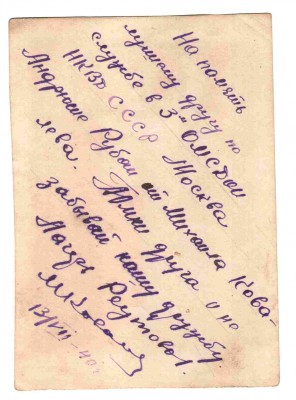 На память
лучшому другу по
службе в 3м ОМСДОН
НКВД СССР Москва
Андрюше Рубан от Михаила Кова-
лева. Помни друга и не
забывай нашу дружбу.
Реутово.
М Ковале
13/VII-40г